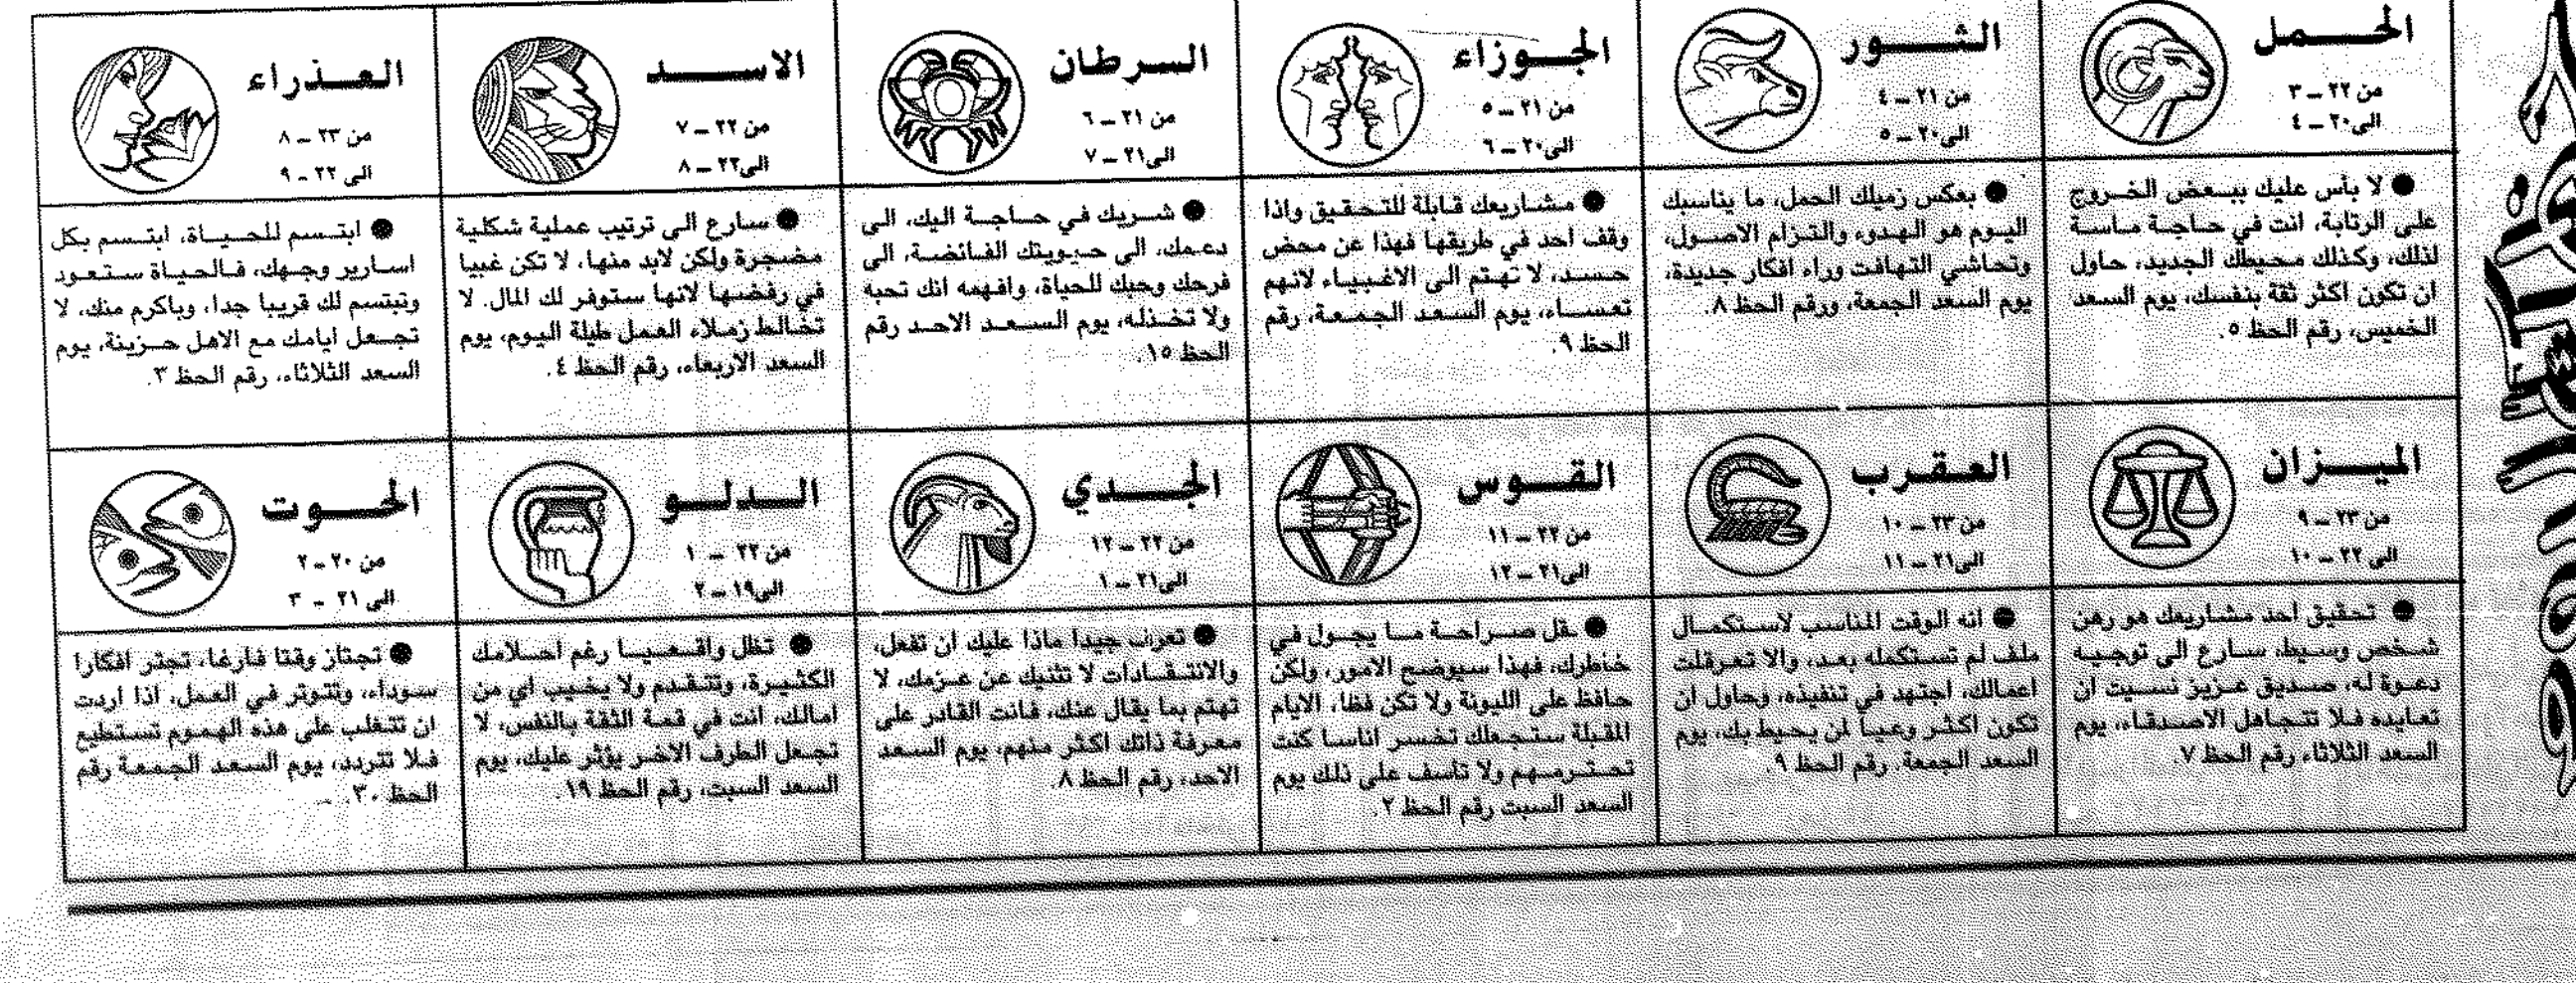 الحمل
من ٢٢ – ٣
الى ٢٠ – ٤
● لا بأس عليك ببعض الخروج
على الرتابة، انت في حاجة ماسة
لذلك، وكذلك محيطك الجديد، حاول
ان تكون اكثر ثقة بنفسك، يوم السعد
الخميس، رقم الحظ ٥.
الثور
من ٢١ – ٤
الى ٢٠ – ٥
● بعكس زميلك الحمل، ما يناسبك
اليوم هو الهدوء والتزام الاصول،
وتحاشي التهافت وراء افكار جديدة،
يوم السعد الجمعة، ورقم الحظ ٨.
الجوزاء
من ٢١ – ٥
الى ٢٠ – ٦
● مشاريعك قابلة للتحقيق واذا
وقف احد في طريقها فهذا عن محض
حسد، لا تهتم الى الاغبياء لانهم
تعساء، يوم السعد الجمعة، رقم
الحظ ٩.
السرطان
من ٢١ – ٦
الى ٢١ – ٧
● شريك في حاجة اليك، الى
دعمك، الى حيويتك الفائضة، الى
فرحك وحبك للحياة، وافهمه انك تحبه
ولا تخذله، يوم السعد الاحد رقم
الحظ ١٥.
الاسد
من ٢٢ – ٧
الى ٢٢ – ٨
● سارع الى ترتيب عملية شكلية
مضجرة ولكن لابد منها، لا تكن غبيا
في رفضها لانها ستوفر لك المال. لا
تخالط زملاء العمل طيلة اليوم، يوم
السعد الاربعاء، رقم الحظ ٤.
العذراء
من ٢٣ – ٨
الى ٢٢ – ٩
● ابتسم للحياة، ابتسم بكل
اسارير وجهك، فالحياة ستعود
وتبتسم لك قريبا جدا، وباكرم منك، لا
تجعل ايامك مع الاهل حزينة، يوم
السعد الثلاثاء، رقم الحظ ٣.
الميزان
من ٢٣ – ٩
الى ٢٢ – ١٠
● تحقيق احد مشاريعك هو رهن
شخص وسيط، سارع الى توجيه
دعوة له، صديق عزيز نسيت ان
تعايده فلا تتجاهل الاصدقاء، يوم
السعد الثلاثاء رقم الحظ ٧.
العقرب
من ٢٣ – ١٠
الى ٢١ – ١١
● انه الوقت المناسب لاستكمال
ملف لم تستكمله بعد، والا تعرقلت
اعمالك، اجتهد في تنفيذه، وحاول ان
تكون اكثر وعياً لمن يحيط بك، يوم
السعد الجمعة. رقم الحظ ٩.
القوس
من ٢٢ – ١١
الى ٢١ – ١٢
● قل صراحة ما يجول في
خاطرك، فهذا سيوضح الامور، ولكن
حافظ على الليونة ولا تكن فظا، الايام
المقبلة ستجعلك تخسر اناسا كنت
تحترمهم ولا تاسف على ذلك يوم
السعد السبت رقم الحظ ٢.
الجدي
من ٢٢ – ١٢
الى ٢١ – ١
● تعرف جيدا ماذا عليك ان تفعل،
والانتقادات لا تثنيك عن عزمك، لا
تهتم بما يقال عنك، فانت القادر على
معرفة ذاتك اكثر منهم، يوم السعد
الاحد، رقم الحظ ٨.
الدلو
من ٢٢ – ١
الى ١٩ – ٢
● تظل واقعيا رغم احلامك
الكثيرة، وتتقدم ولا يخيب اي من
امالك، انت في قمة الثقة بالنفس، لا
تجعل الطرف الاخر يؤثر عليك، يوم
السعد السبت، رقم الحظ ١٩.
الحوت
من ٢٠ – ٢
الى ٢١ – ٣
● تجتاز وقتا فارغا، تجتر افكارا
سوداء، وتتوتر في العمل، اذا اردت
ان تتغلب على هذه الهموم تستطيع
فلا تتردد، يوم السعد الجمعة رقم
الحظ ٣٠.